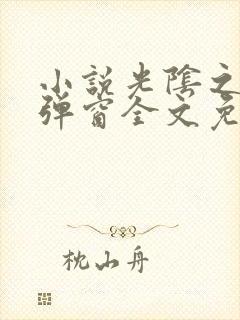 小說光陰之
彈窗全文免
枕山舟